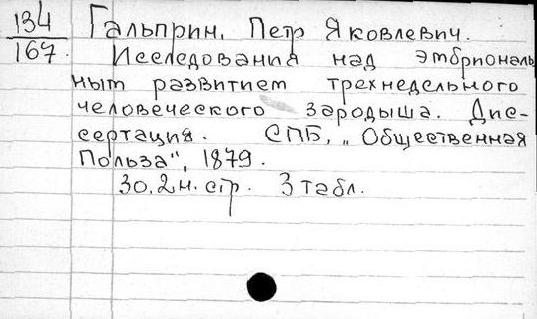 134
167
Гальприн, Петр Яковлевич.
Исследования над эмбриональ
ным развитием трехнедельного
человеческого зародыша. Дис-
сертация. СПБ, „Общественная
Польза", 1879.
30,2 н. стр. 3 табл.